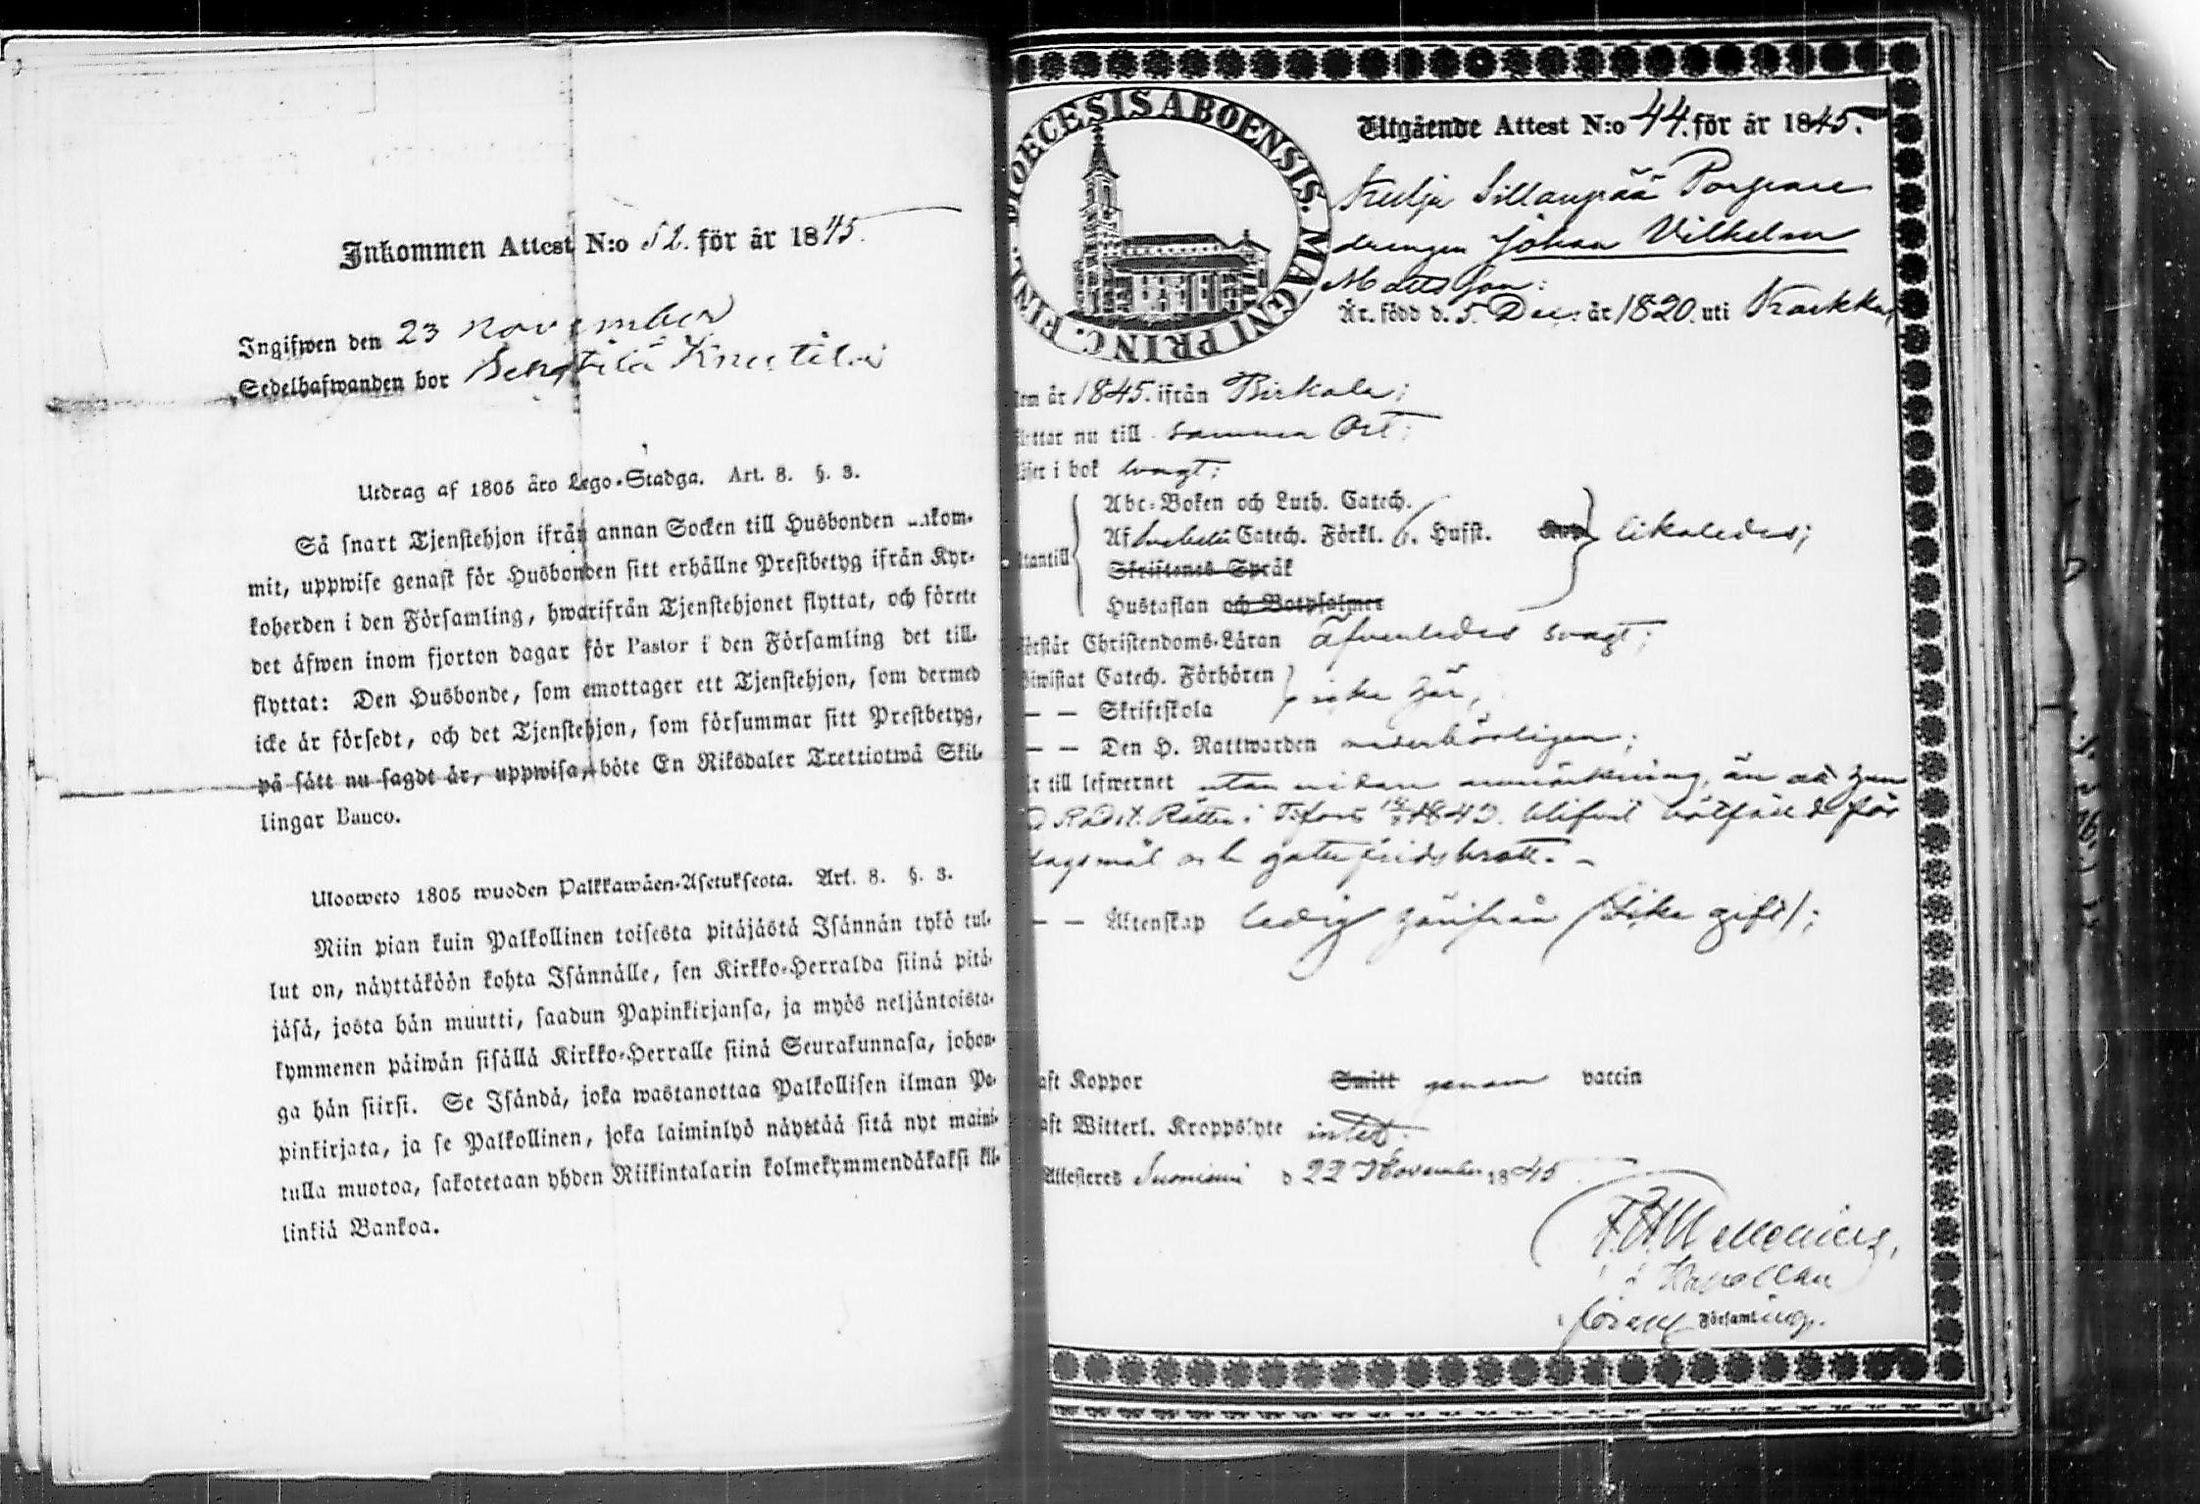 Inkommen Attest N:o 52. för år 1845.
Ingifwen den 23 november
Sedelhafwanden bor Bengtilä Knutila
Utdrag af 1805 års Lego-Stadga. Art. 8. §. 3.
Så snart Tjenstehjon ifrån annan Socken till Husbonden kom-
mit, uppwise genast för Husbonden sitt erhållne Prestbetyg ifrån Kyr-
koherden i den Församling, hwarifrån Tjenstehjonet flyttat, och förete
det äfwen inom fjorton dagar för Pastor i den Församling det till-
flyttat: Den Husbonde, som emottager ett Tjenstehjon, som dermed
icke är försedt, och det Tjenstehjon, som försummar sitt Prestbetyg,
på sätt nu sagdt är, uppwisa, böte En Riksdaler Trettiotwå Skil-
lingar Banco.
Uloosweto 1805 wuoden Palkkawäen-Asetuksesta. Art. 8. §. 3.
Niin pian kuin Palkollinen toisesta pitäjästä Isännän tykö tul-
lut on, näyttäköön kohta Isännälle, sen Kirkko-Herralda siinä pitä-
jäsä, josta hän muutti, saadun Papinkirjansa, ja myös neljäntoista-
kymmenen päiwän sisällä Kirkko-Herralle siinä Seurakunnasa, johon-
ga hän siirsi. Se Isändä, joka wastanottaa Palkollisen ilman Pa-
pinkirjata, ja se Palkollinen, joka laiminlyö näyttää sitä nyt maini-
tulla muotoa, sakotetaan yhden Riikintalarin kolmekymmendäkaksi kil-
linkiä Bankoa.
DIOECESIS ABOENSIS. MAGNI PRINC. FINL.
Utgående Attest N:o 44. för år 1845.
Sillanpää
drengen Johan Vilhelm
Matts Son:
Är född d. 5. Dec. år 1820. uti Karkku,
år 1845. ifrån Birkala;
nu till samma Ort;
i bok svagt;
Abc-Boken och Luth. Catech.
Af Catech. Förkl. 6. Hufst. likaledes;
Skriftenes Språk
Hustaflan och Botpsalmer
Christendoms-Läran äfvenledes svagt;
Catech. Förhören
– – Skriftskola icke här,
– – Den H. Nattwarden vederbörligen;
till lefwernet utan vidare anmärkning, än att han
Rådst. Rätten i T:fors 1842. blifvit bötfäld för
slagsmål och gatufridsbrott. –
– – Äktenskap ledig härifrån (icke gift);
Koppor Smitt genom vaccin
Witterl. Kroppslyte intet.
Attesteres Suoniemi d 22 November 1845
Kapellan
Församling.